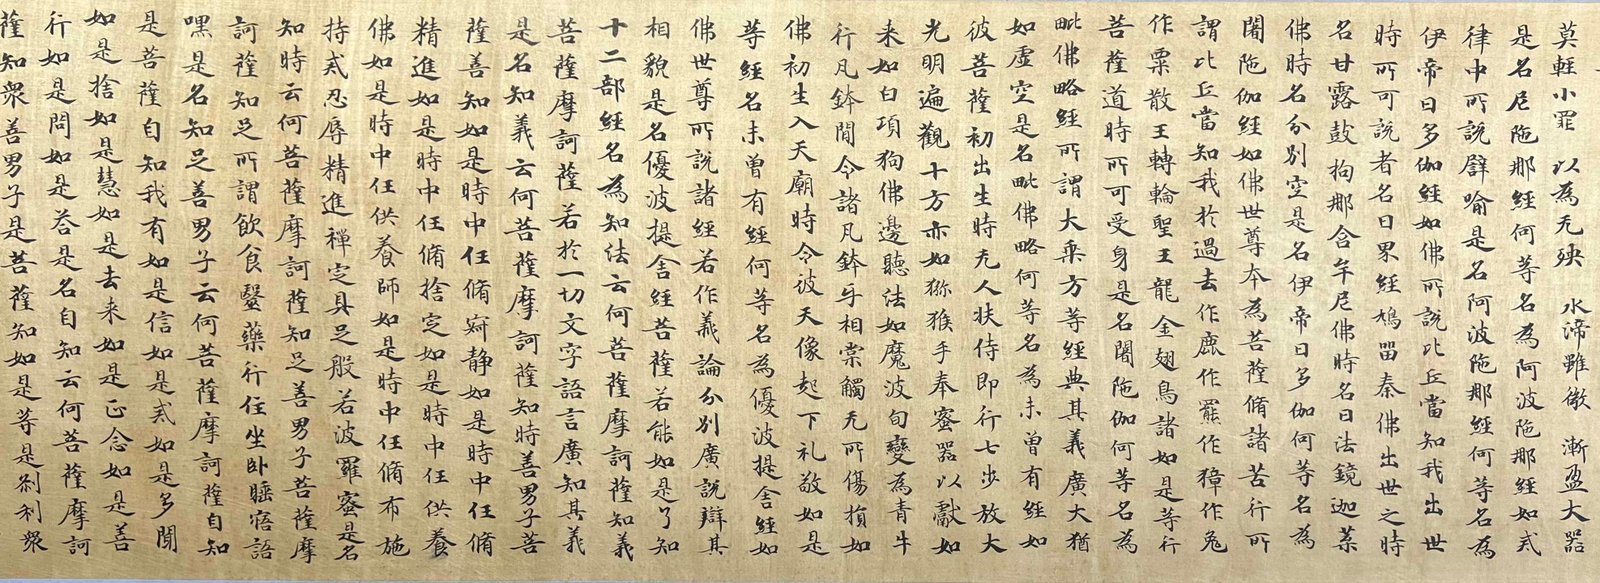 莫輕小罪 以為无殃 水渧雖微 漸盈大器
是名尼陁那經何等名為阿波陁那經如戒
律中所說譬喻是名阿波陁那經何等名為
伊帝曰多伽經如佛所說比丘當知我出世
時所可說者名曰界經鳩留秦佛出世之時
名甘露鼓拘那含牟尼佛時名曰法鏡迦葉
佛時名分別空是名伊帝曰多伽何等名為
闍陁伽經如佛世尊本為菩薩脩諸苦行所
謂比丘當知我於過去作鹿作羆作獐作兔
作粟散王轉輪聖王龍金翅鳥諸如是等行
菩薩道時所可受身是名闍陁伽何等名為
毗佛略經所謂大乘方等經典其義廣大猶
如虛空是名毗佛略何等名為未曾有經如
彼菩薩初出生時无人扶侍即行七步放大
光明遍觀十方亦如猕猴手奉蜜器以獻如
来如白項狗佛邊聽法如魔波旬變為青牛
行凡鉢間令諸凡鉢㸦相棠觸无所傷損如
佛初生入天廟時令彼天像起下礼敬如是
等經名未曾有經何等名為優波提舍經如
佛世尊所說諸經若作義論分別廣說辯其
相貌是名優波提舍經菩薩若能如是了知
十二部經名為知法云何菩薩摩訶薩知義
菩薩摩訶薩若於一切文字語言廣知其義
是名知義云何菩薩摩訶薩知時善男子菩
薩善知如是時中任脩㝷静如是時中任脩
精進如是時中任脩捨定如是時中任供養
佛如是時中任供養師如是時中任脩布施
持戒忍辱精進禪定具足般若波羅蜜是名
知時云何菩薩摩訶薩知足善男子菩薩摩
訶薩知足所謂飲食毉藥行住坐卧睡寤語
嘿是名知足善男子云何菩薩摩訶薩自知
是菩薩自知我有如是信如是戒如是多聞
如是捨如是慧如是去来如是正念如是善
行如是問如是荅是名自知云何菩薩摩訶
薩知衆善男子是菩薩知如是等是刹利衆